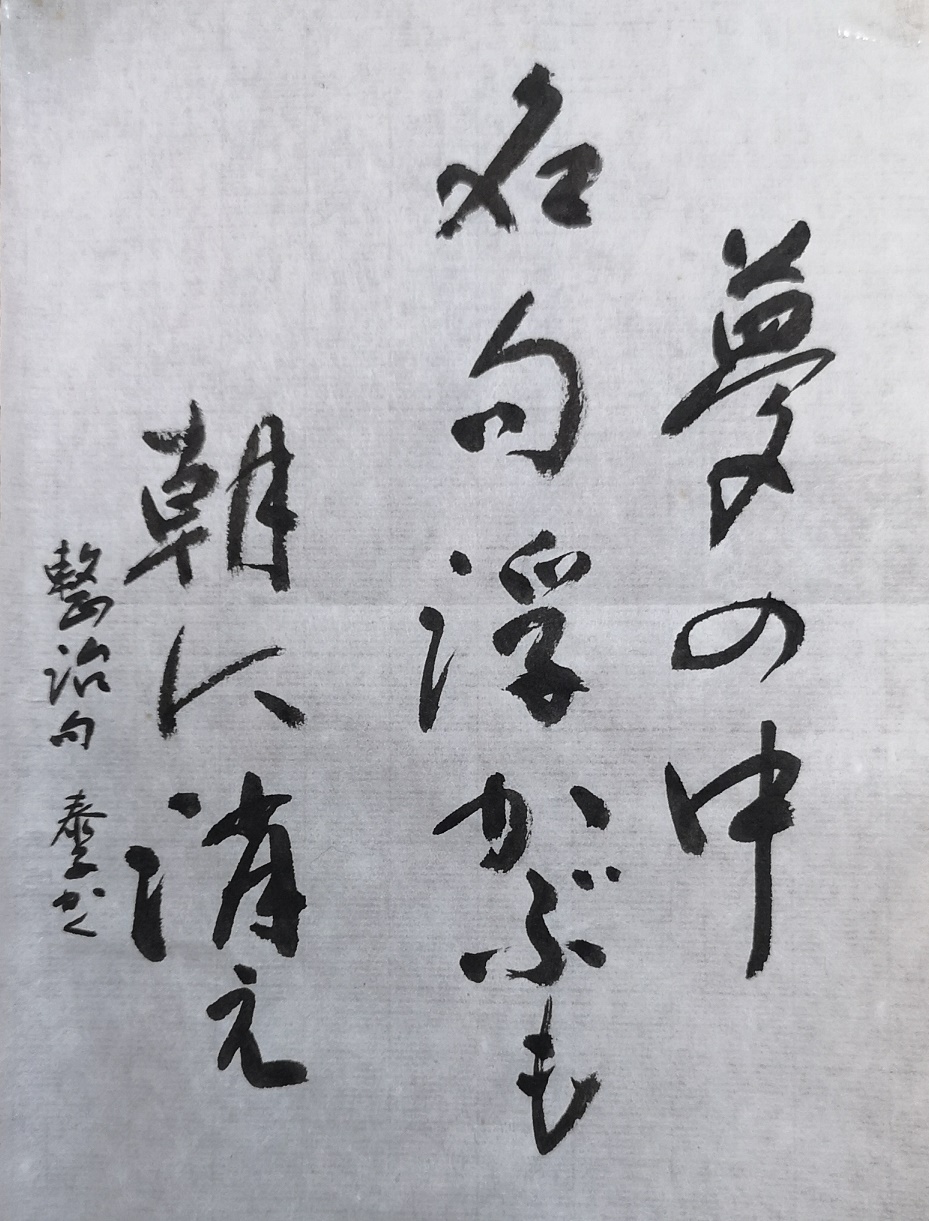 夢の中
名句浮かぶも
朝に消え
治句 泰子かく